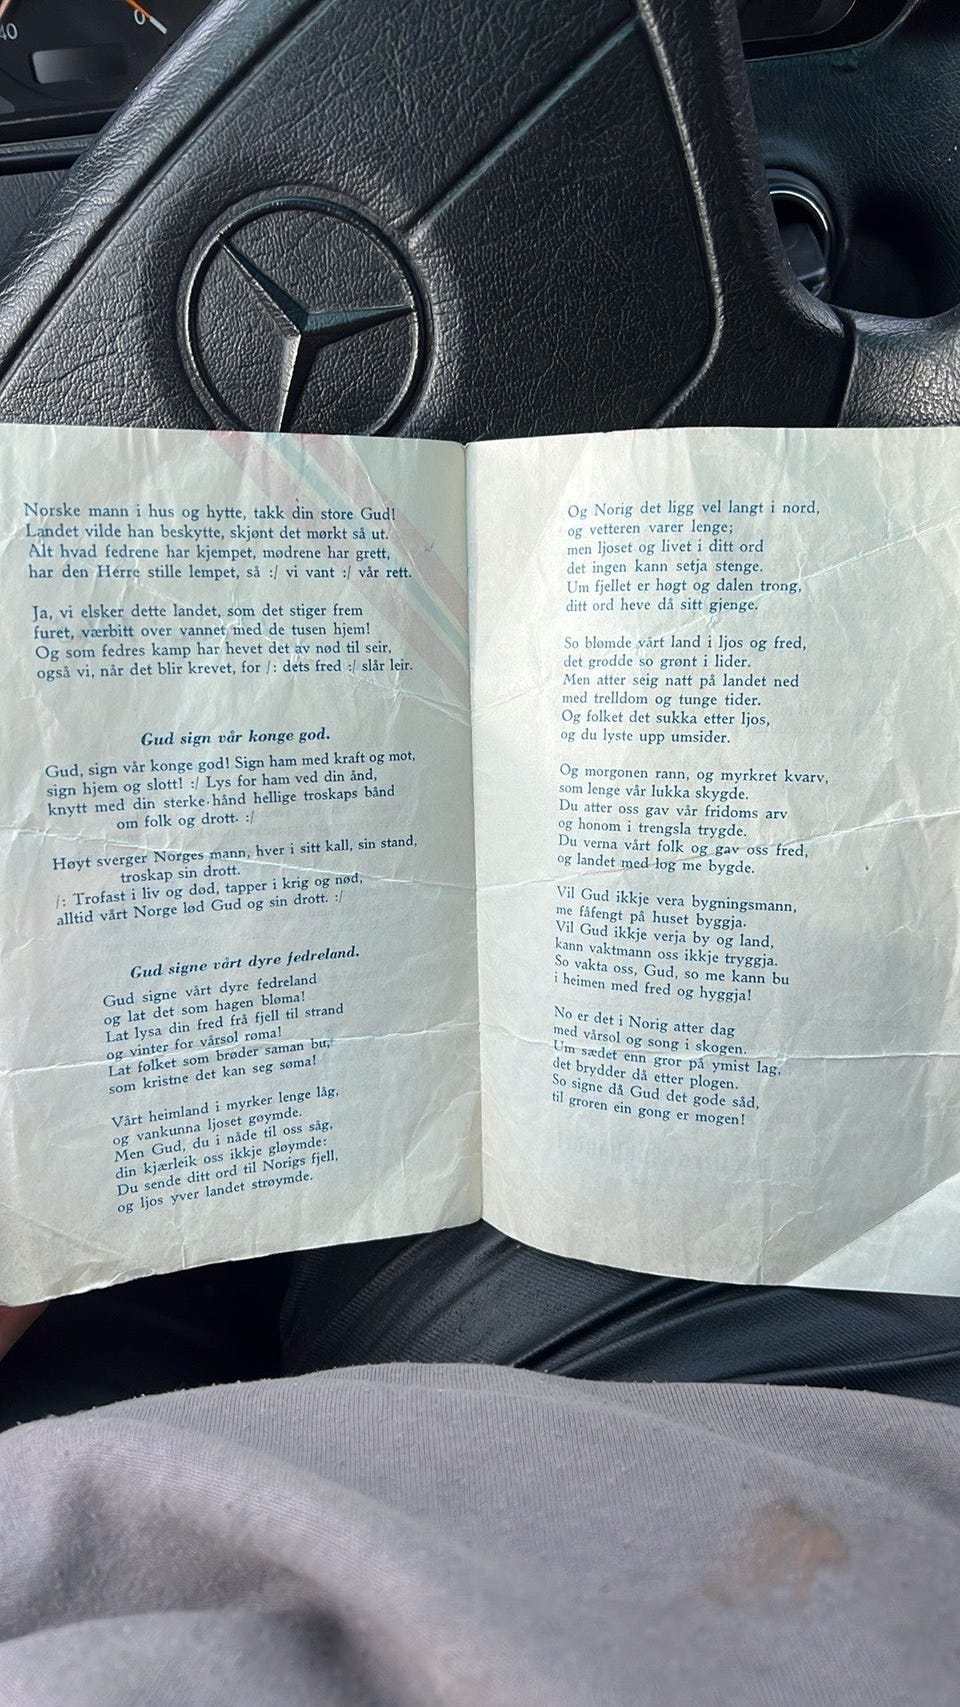 40
0
Norske mann i hus og hytte, takk din store Gud!
Landet vilde han beskytte, skjønt det mørkt så ut.
Alt hvad fedrene har kjempet, mødrene har grett,
har den Herre stille lempet, så :/ vi vant :/ vår rett.
Ja, vi elsker dette landet, som det stiger frem
furet, værbitt over vannet med de tusen hjem!
Og som fedres kamp har hevet det av nød til seir,
også vi, når det blir krevet, for /: dets fred :/ slår leir.
Gud sign vår konge god.
Gud, sign vår konge god! Sign ham med kraft og mot,
sign hjem og slott! :/ Lys for ham ved din ånd,
knytt med din sterke hånd hellige troskaps bånd
om folk og drott. :/
Høyt sverger Norges mann, hver i sitt kall, sin stand,
troskap sin drott.
/: Trofast i liv og død, tapper i krig og nød,
alltid vårt Norge lød Gud og sin drott. :/
Gud signe vårt dyre fedreland.
Gud signe vårt dyre fedreland
og lat det som hagen bløma!
Lat lysa din fred frå fjell til strand
og vinter for vårsol røma!
Lat folket som brøder saman bu,
som kristne det kan seg søma!
Vårt heimland i myrker lenge låg,
og vankunna ljoset gøymde.
Men Gud, du i nåde til oss såg,
din kjærleik oss ikkje gløymde:
Du sende ditt ord til Norigs fjell,
og ljos yver landet strøymde.
Og Norig det ligg vel langt i nord,
og vetteren varer lenge;
men ljoset og livet i ditt ord
det ingen kann setja stenge.
Um fjellet er høgt og dalen trong,
ditt ord heve då sitt gjenge.
So blømde vårt land i ljos og fred,
det grødde so grønt i lider.
Men atter seig natt på landet ned
med trelldom og tunge tider.
Og folket det sukka etter ljos,
og du lyste upp umsider.
Og morgonen rann, og myrkret kvarv,
som lenge vår lukka skygde.
Du atter oss gav vår fridoms arv
og honom i trengsla trygde.
Du verna vårt folk og gav oss fred,
og landet med log me bygde.
Vil Gud ikkje vera bygningsmann,
me fåfengt på huset byggja.
Vil Gud ikkje verja by og land,
kann vaktmann oss ikkje tryggja.
So vakta oss, Gud, so me kann bu
i heimen med fred og hyggja!
No er det i Norig atter dag
med vårsol og song i skogen.
Um sædet enn gror på ymist lag,
det brydder då etter plogen.
So signe då Gud det gode såd,
til groren ein gong er mogen!